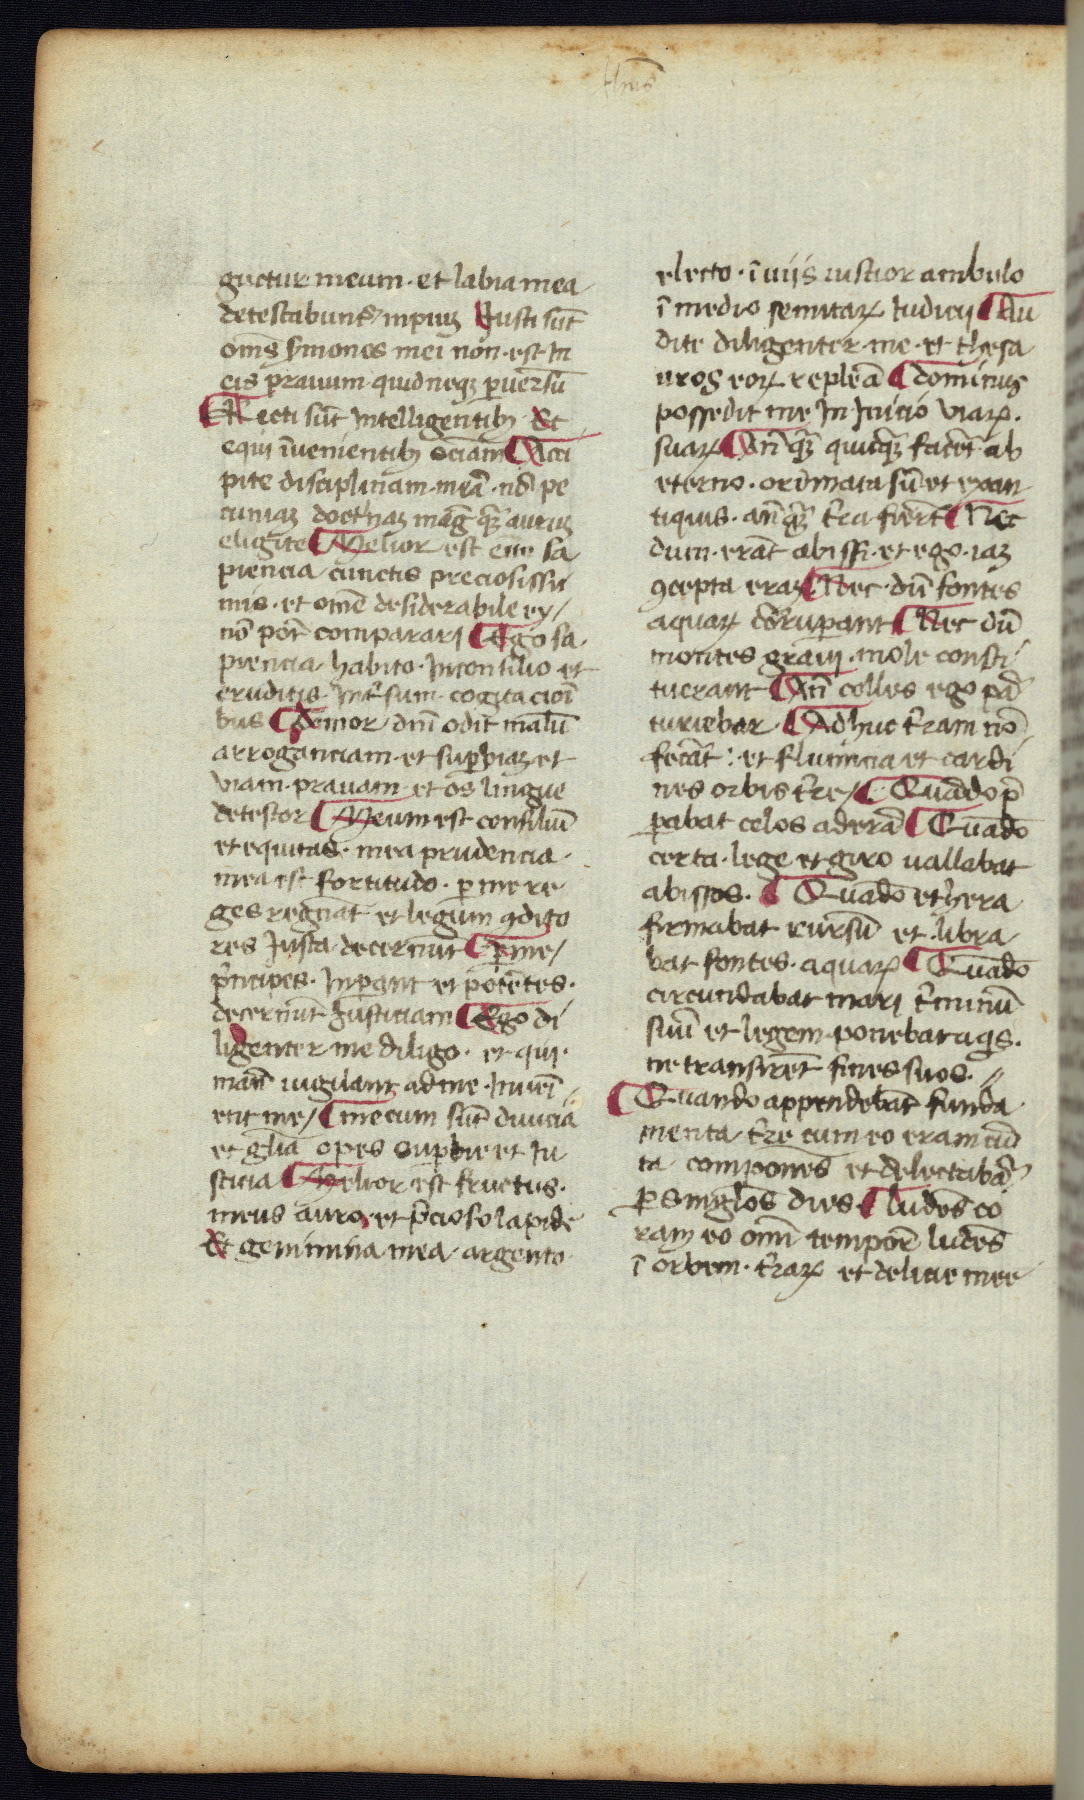 guttur meum · et labia mea
detestabunt᷑ inpiuꝫ Justi sūt
om̄s ẜmones mei non · est in
eis prauum quid neqꝫ ꝑuersū
Recti sūt intelligentibꝫ Et
equi īuenientibꝫ sciam Acci
pite disciplinam · meā · nō pe
cuniaꝫ doct'naꝫ mag̃ qꝫ̄ auruꝫ
eligite Melior est em̄ sa
piencia cunctis preciosissi
mis · et om̄e desiderabile ey
nō pot̄ comparari Ego sa
piencia · habito · in consilio et
eruditis · int̄ sum · cogitacioī
bus timor dn̄i odit malū
arroganciam · et suꝑbiaꝫ et
viam · prauam et os lingue
detestor Meum est consiliū
et equitas · mea prudencia ·
mea est fortitudo · ꝑ me re
ges regnāt et legum ꝯdito
res Justa decernūt ꝑ me
p'ncipes · Inꝑant et potētes ·
decernūt Justiciam Ego di
ligenter me diligo · et qui ·
man̄ uigilant ad me · Inueī
ent me mecum sūt diuicia
et glīa opes suꝑbie et iu
sticia Melior est fructus ·
meus auro · et p̄cioso lapide
Et genimina mea · argento
electo · ī uiis iusticior ambulo
ī medio semitaꝝ Judicii Au
dite diligenter me · et thesa
uros eoꝝ repleā dominus
possedit me In Inicio viaꝝ ·
suaꝝ An̄ qꝫ̄ quicqꝫ̄ facēt ab
eterno · ordinata sū et exan
tiquis · an̄qꝫ̄ t̄ra fierēt Nec
dum · erāt abissi · et ego · iaꝫ
ꝯcepta eraꝫ Nec · dū fontes
aquaꝝ eruꝑant Nec dū
montes graui · mole consti
tuerant An̄ colles ego pa᷑
turiebar · Adhuc t̄ram nō
fecāt : et flumina et cardi
nes orbis t̄re Quādo p̄
ꝑabat celos aderā Quādo
certa · lege et giro uallabat
abissos · Quādo ethera
firmabat rursū et · libra
bat fontes · aquaꝝ Quādo
circundabat mari t̄minū
suū et legem · ponebat aqīs ·
ne transirēt fines suos ·
Quando appendebāt funda
menta t̄re cum eo eram cūc
ta · componens et delectabar᷑
ꝑ singlōs dies · ludēs co
ram eo om̄i tempore ludēs
ī orbem · t̄raꝝ et delicie mee